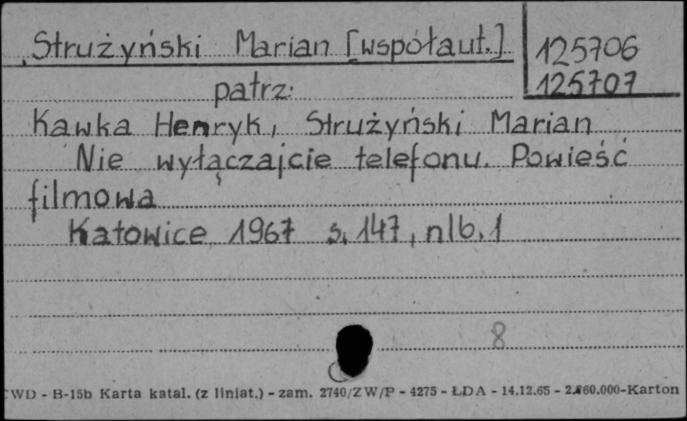 Strużyński Marian [współaut.] 125706
125707
patrz:
Kawka Henryk, Strużyński Marian
Nie wyłączajcie telefonu. Powieść
filmowa
Katowice 1967 s. 147, nlb. 1
8
CWD - B-15b Karta katal. (z liniat.) - zam. 2740/ZW/P - 4275 - ŁDA - 14.12.65 - -Karton